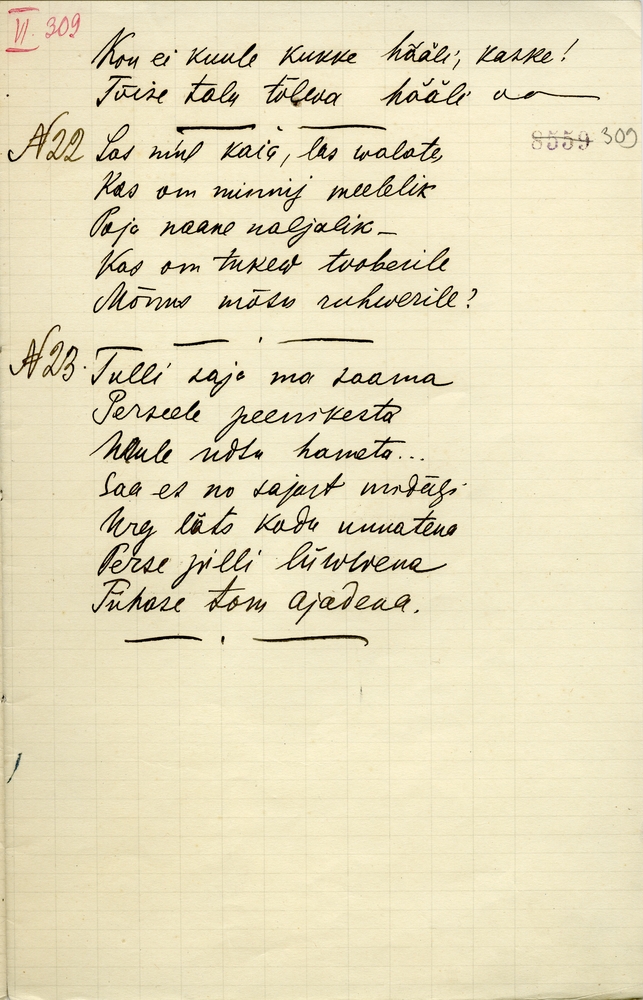 VI 309
Kon ei kuule kukke hääli, kaske!
Tõise talu tõleva hääli
8559 309
N22 Las nüid kaia, las walate,
Kas om minnij meelelik
Poja naane naljalik –
Kas om tukew tooberile
Mõnus mõsu ruhwerile?
N23. Tulli saja ma saama
Perseele peenikesta
udsu hameta...
Saa es no sajast midägi
Nrg läts kodu unnatena
Perse pilli lüwwena
Pühase tom ajadena.